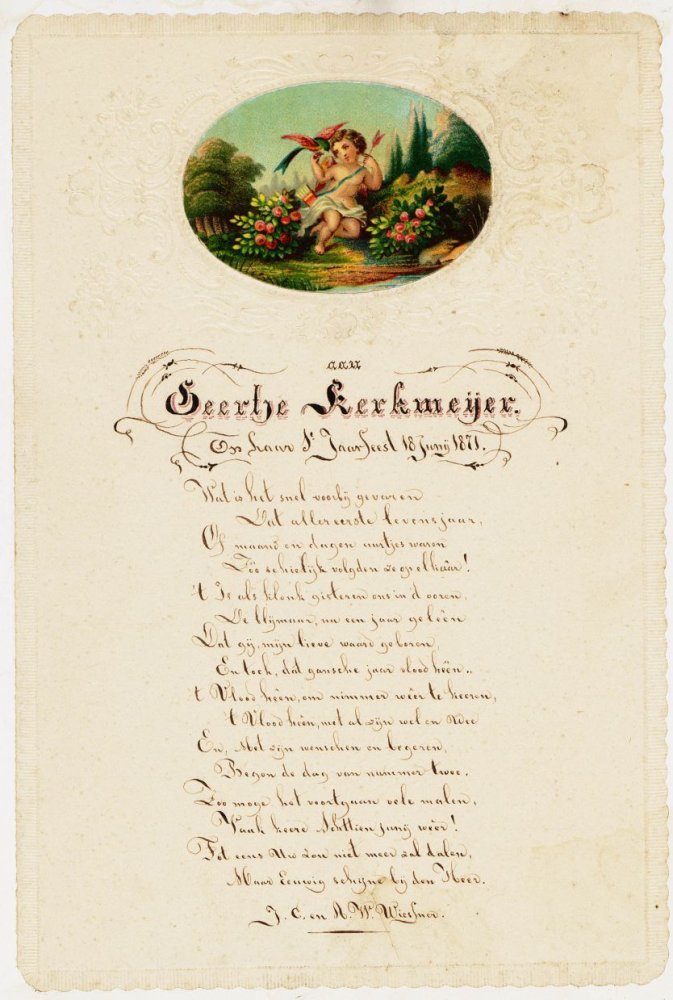 aan
Geertje Kerkmeijer.
Op haar 1e Jaarfeest 18 Junij 1871.
Wat is het snel voorbij gevaren
Dat allereerste levensjaar,
Of maand en dagen uurtjes waren
Zóó schielijk volgden ze op elkaar!
't Is als klonk gisteren ons in d'ooren,
De blijmaar, nu een jaar geleên
Dat gij, mijn lieve waard geboren,
En toch, dat gansche jaar vlood héén..
't Vlood héén, om nimmer wêer te keeren,
't Vlood héén, met al zijn wel en wee
En, Met zijn wenschen en begeren,
Begon de dag van nummer twee.
Zoo moge het voortgaan vele malen,
Vaak keere Achttien junij wêer!
Tot eens Uw zon niet meer zal dalen,
Maar Eeuwig schijne bij den Heer.
J. C. en A. W. Wiessner.